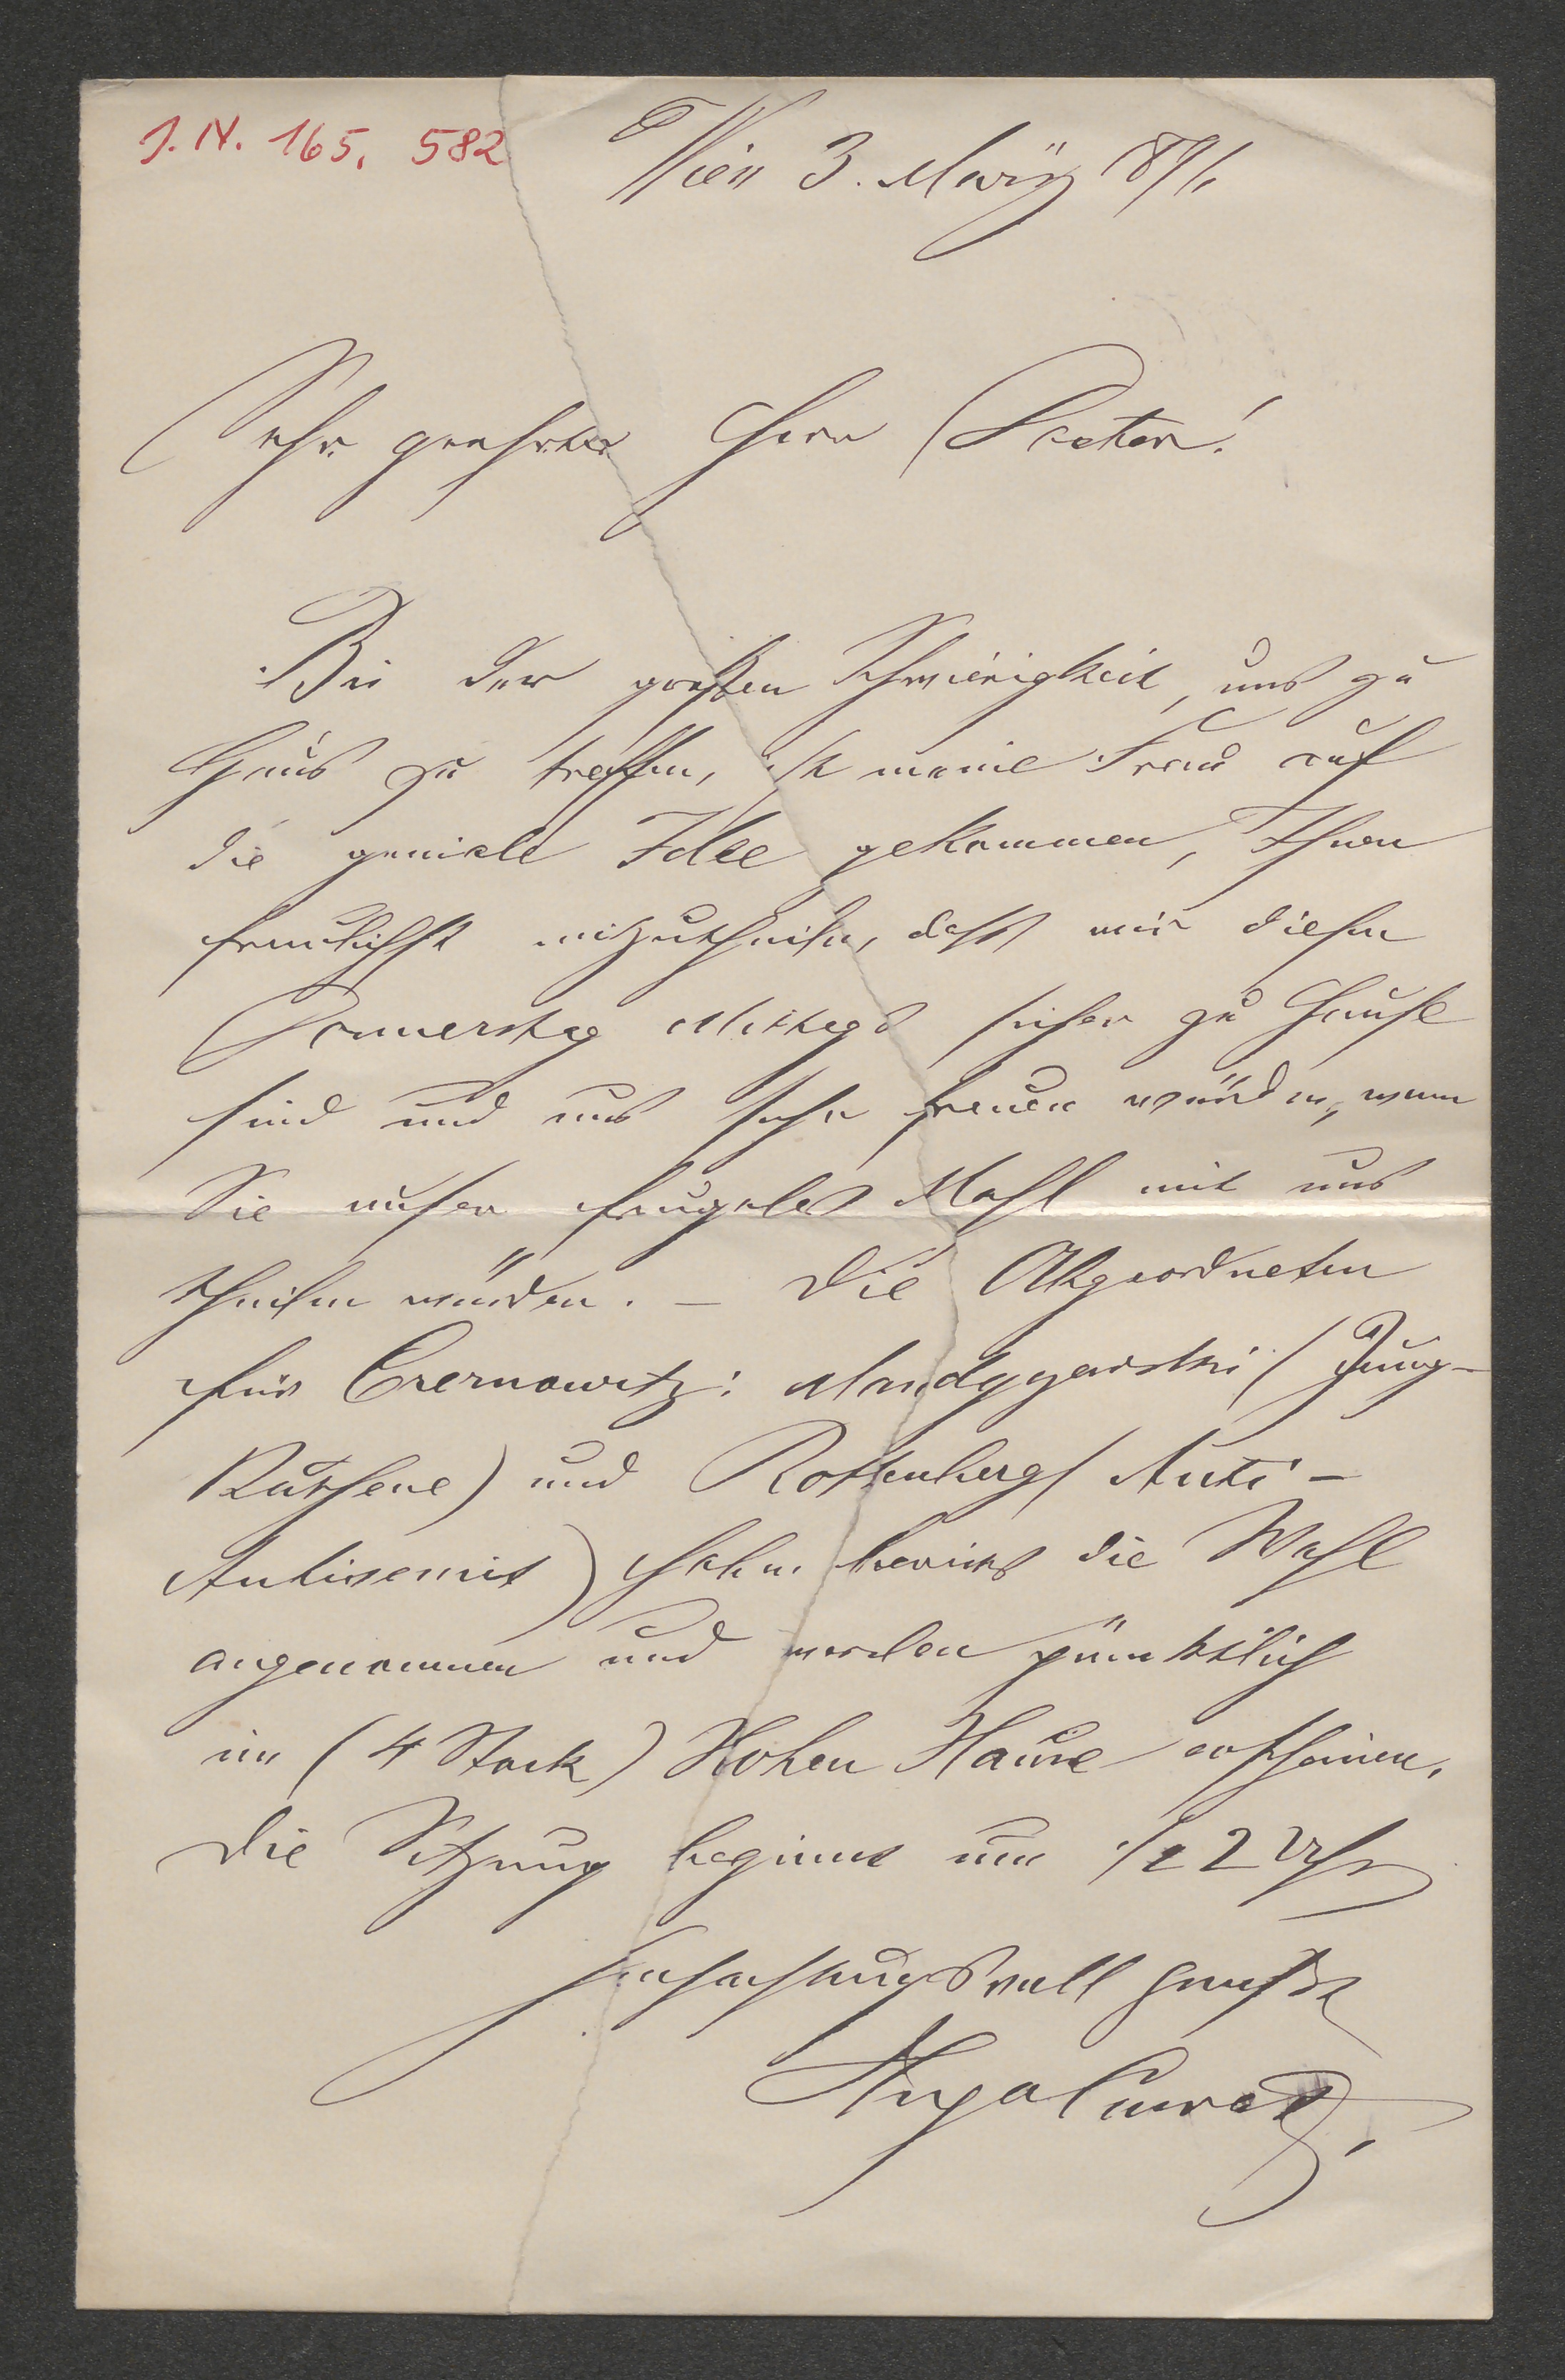 J. N. 165. 582
Wien 3. März 891
Sehr geehrter Herr Doctor!
Bei der großen Schwierigkeit, uns zu
Haus zu treffen, ist meine Frau auf
die geniale Idee gekommen, Ihnen
freundlichst mitzutheilen, dass wir diesen
Donnerstag Mittags sicher zu Hause
sind und uns sehr freuen würden, wenn
Sie unser frugales Mahl mit uns
theilen würden. – Die Abgeordneten
für Czernowitz: Mandyczewski (Jung-
Ruthene) und Rottenberg (Anti-
Antisemit) haben bereits die Wahl
angenommen und werden pünktlich
im (4 Stock) Hohen Hause erscheinen.
Die Sitzung beginnt um 1/2 2 Uhr
Hochachtungsvoll grüßt
Hugo Conrat.